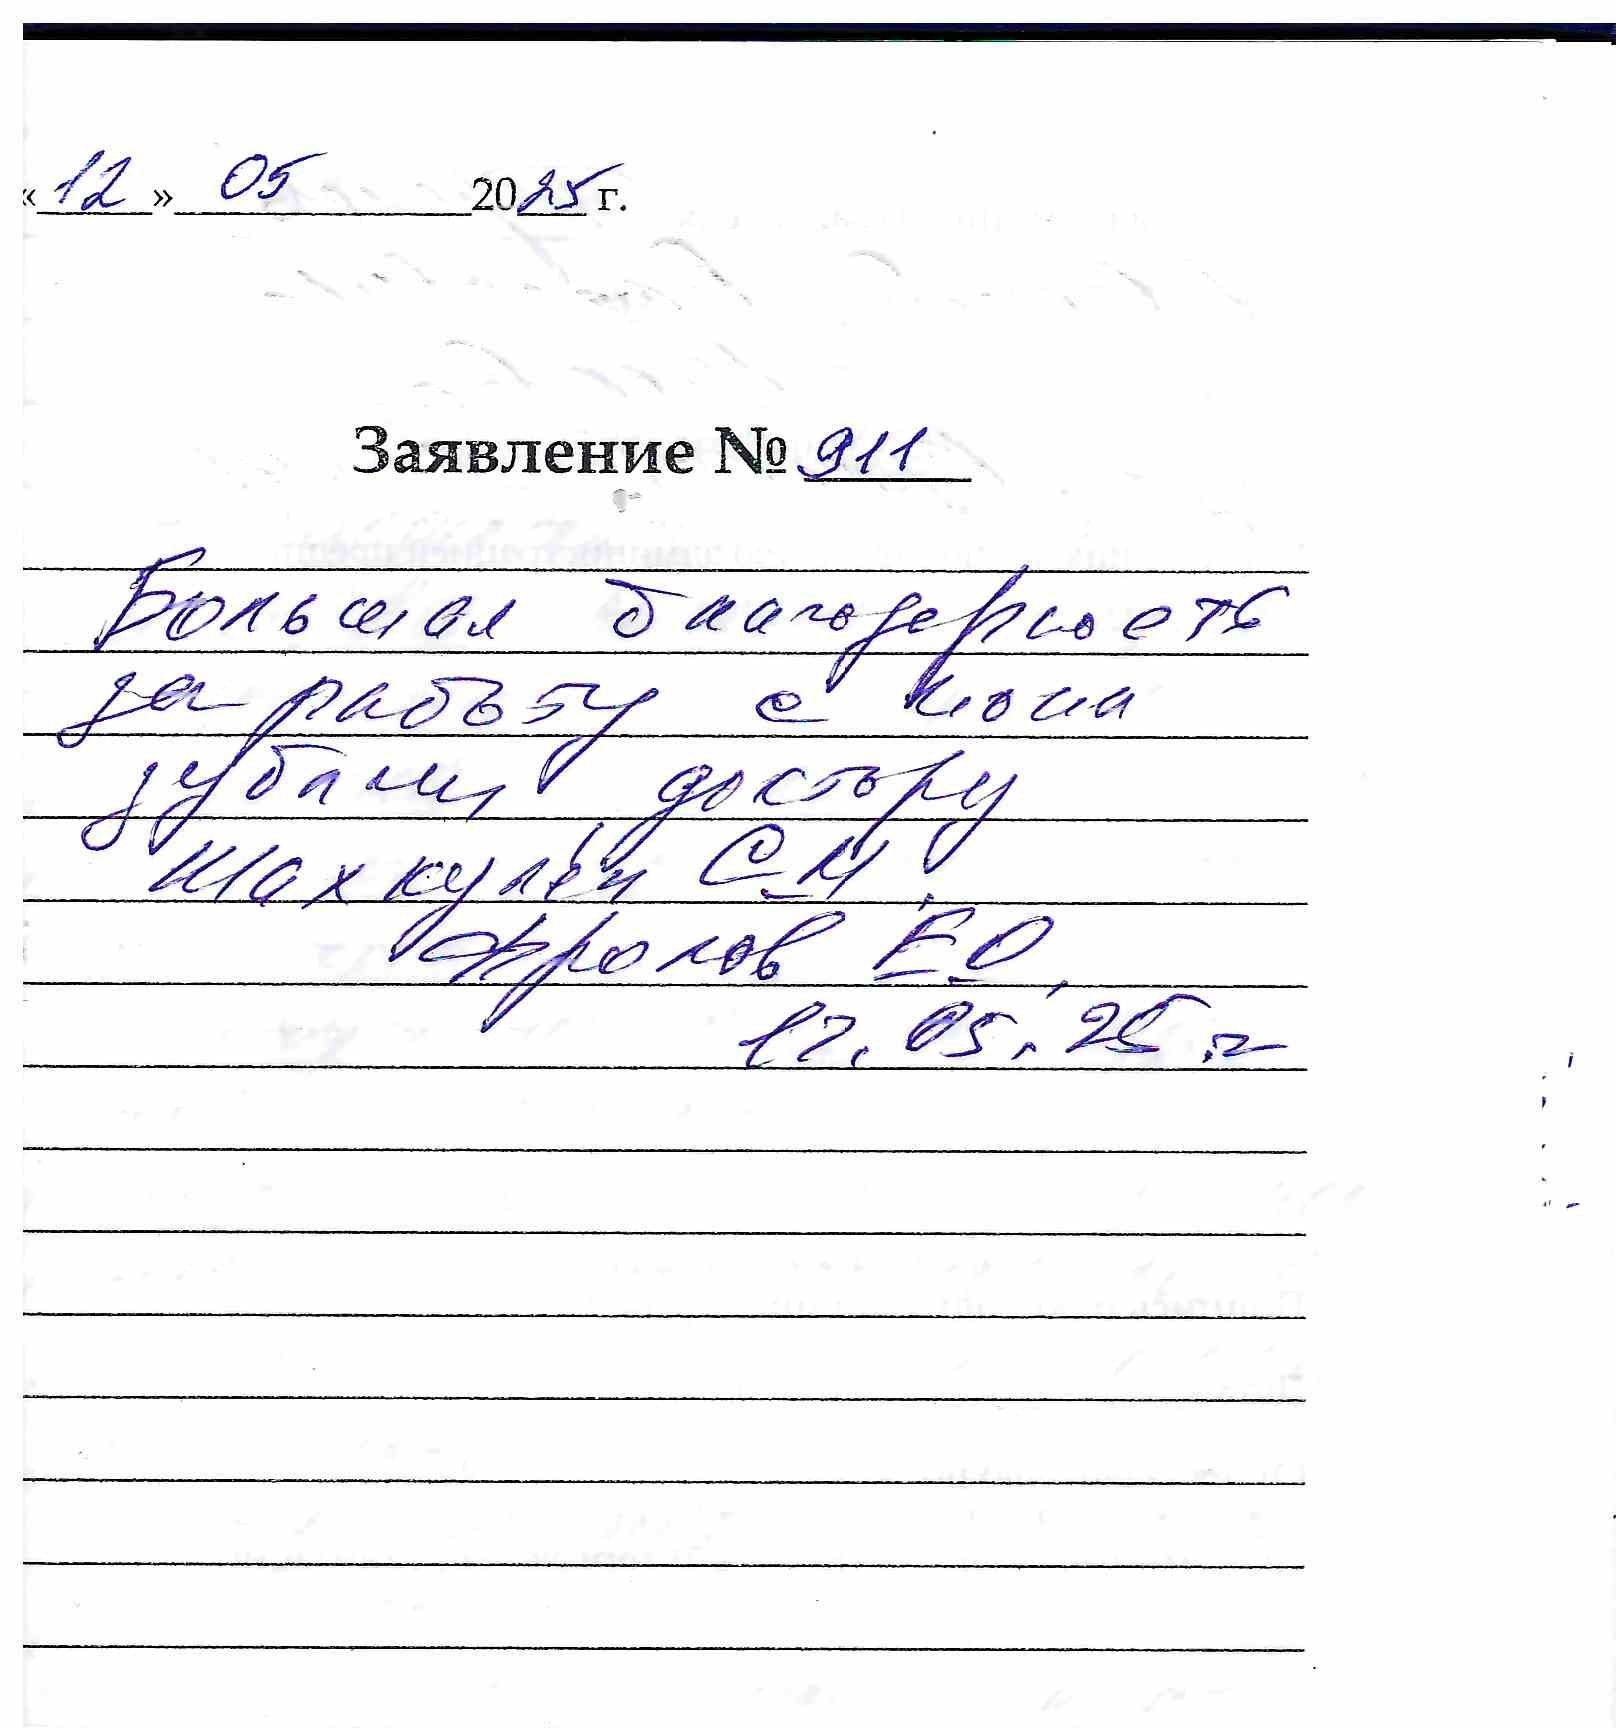 «12» 05 2025 г.
Заявление № 911
Большая благодарность
за работу с мои
зубами доктору
Шахкулян С.М.
Фролов Е.О.
12.05.25 г